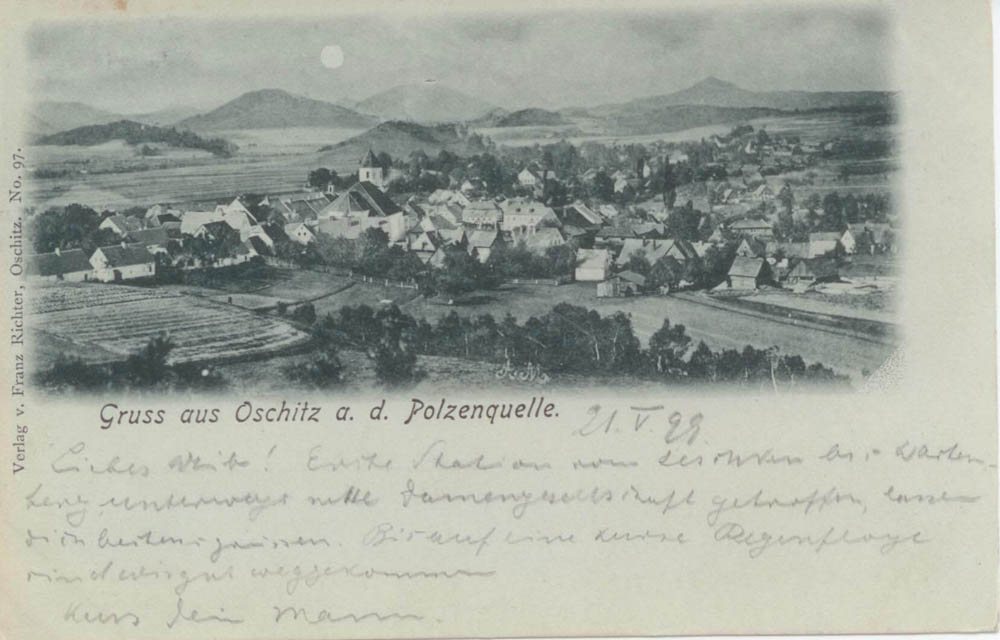 Verlag v. Franz Richter, Oschitz. No. 97.
Gruss aus Oschitz a. d. Polzenquelle.
21. V 99
Liebes Weib! Erste Station vom Jeschken bis Warten-
berg unterwegs nette Damengesellschaft getroffen, lassen
dich bestens grüssen. Bis auf eine kurze Regenplage
sind wir gut weggekommen
Kuss dein Mann.